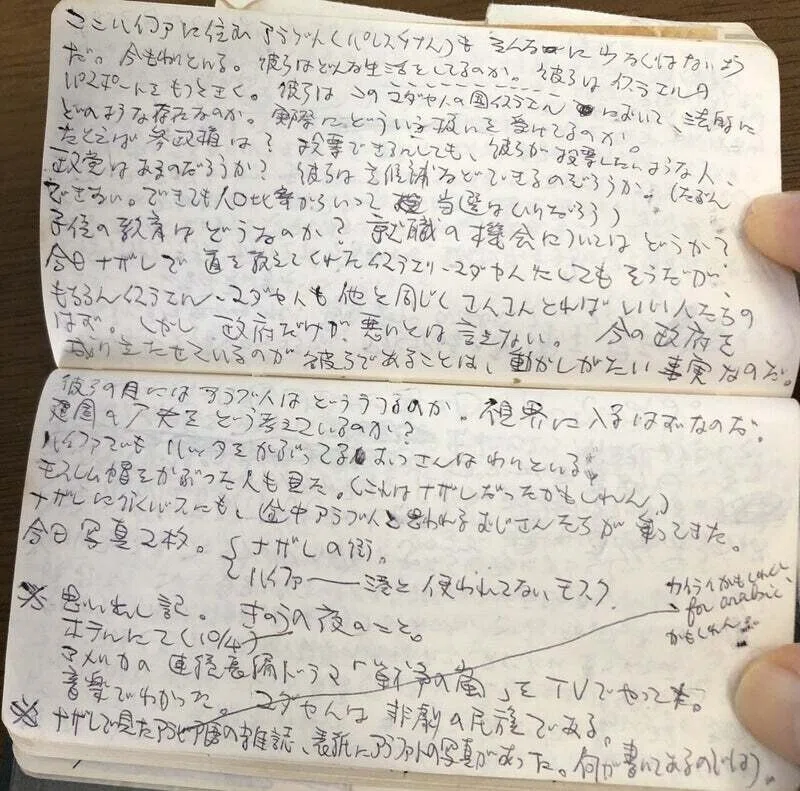 ここハイファに住むアラブ人(パレスチナ人)もそんなに少なくはないよう
だ。今もわりといる。彼らはどんな生活をしてるのか。彼らはイスラエルの
パスポートをもつときく。彼らはこのユダヤ人の国イスラエルにおいて、法的に
どのような存在なのか。実際にどういう扱いを受けてるのか。
たとえば参政権は?投票できるんしても、彼らが投票したいような人、
政党はあるのだろうか?彼らは立候補などできるのだろうか。(たぶん
できない。できても人口比率からいって当選はムリだろう)
子供の教育はどうなのか?就職の機会についてはどうか?
今日ナザレで道を教えてくれたイスラエリ・ユダヤ人たしてもそうだが
もちろんイスラエル・ユダヤ人も他と同じくこんこんとれば いい人たちの
はず。しかし政府だけが悪いとは言えない。今の政府を
成り立たせているのが彼らであることは、動かしがたい事実なのだ。
彼らの目にはアラブ人はどううつるのか。視界に入るはずなのだ。
建国の をどう考えているのか?
ハイファでもハッタをかぶってるおっさんはわりといる。
モスレム帽をかぶった人も見た。(これはナザレだったかもしれん)
ナザレに行くバスにも、途中アラブ人と思われるおじさんたちが乗ってきた。
今日写真2枚。 ナザレの街。
ハイファ ― 港と使われてないモスク
※ 思い出し記。きのうの夜のこと。
ホテルにて(10/4)
アメリカの連続長編ドラマ「戦争の嵐」をTVでやってた。
音楽でわかった。ユダヤ人は悲劇の民族である。
※ ナザレで見たアラビア語の雑誌、表紙にアラファトの写真があった。何が書いてあるのだろう
かもしれん
for arabic
かもしれん。